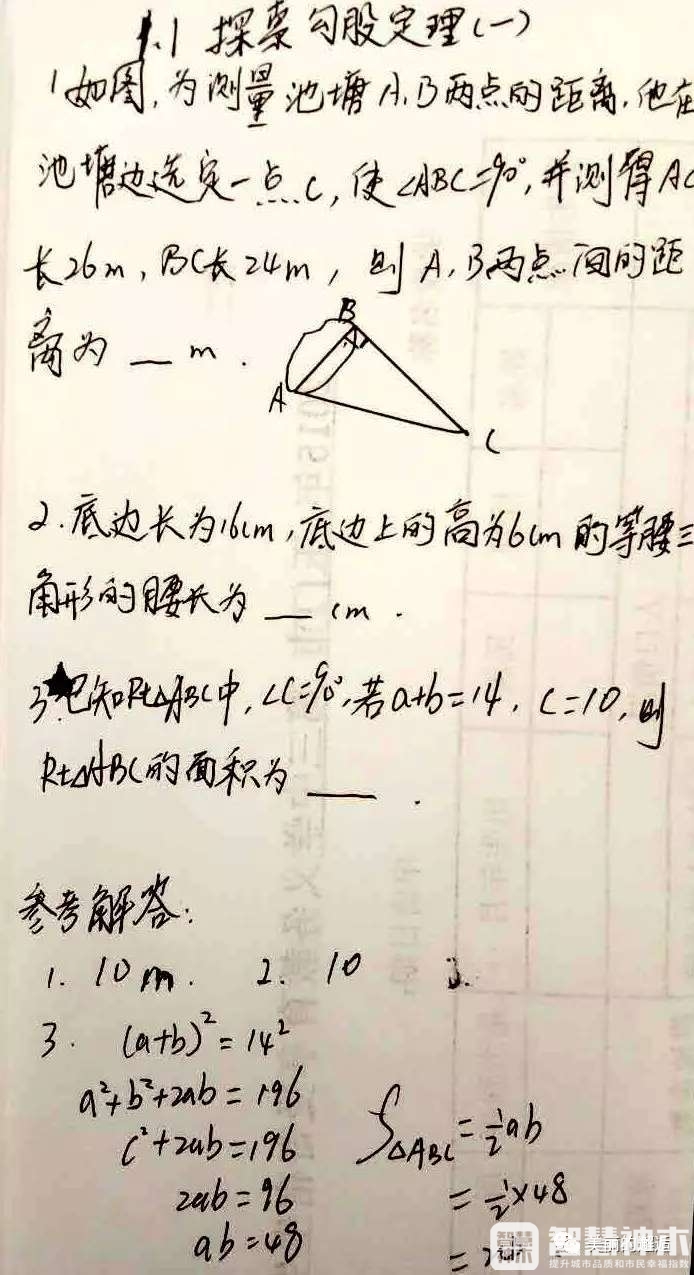 1.1 探索勾股定理(一)
1 如图,为测量池塘A.B两点的距离.他在
池塘边选定一点C,使∠ABC=90°,并测得AC
长26m,BC长24m,则A.B两点间的距
离为 __ m.
B
A
C
2.底边长为16cm,底边上的高为6cm的等腰三
角形的腰长为 __ cm.
3.★已知Rt△ABC中,∠C=90°,若a+b=14.C=10,则
Rt△ABC的面积为 ___ .
参考解答:
1. 10m. 2. 10
3. (a+b)²=14²
a²+b²+2ab=196
c²+2ab=196
2ab=96
ab=48
S△ABC=½ab
=½×48
=2
智慧神木
提升城市品质和市民幸福指数